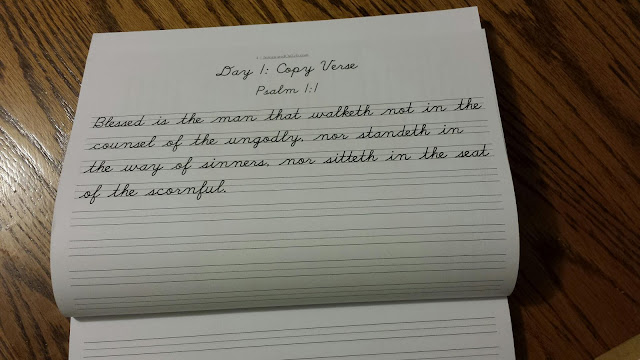 Day 1: Copy Verse
Psalm 1:1
Blessed is the man that walketh not in the
counsel of the ungodly, nor standeth in
the way of sinners, nor sitteth in the seat
of the scornful.